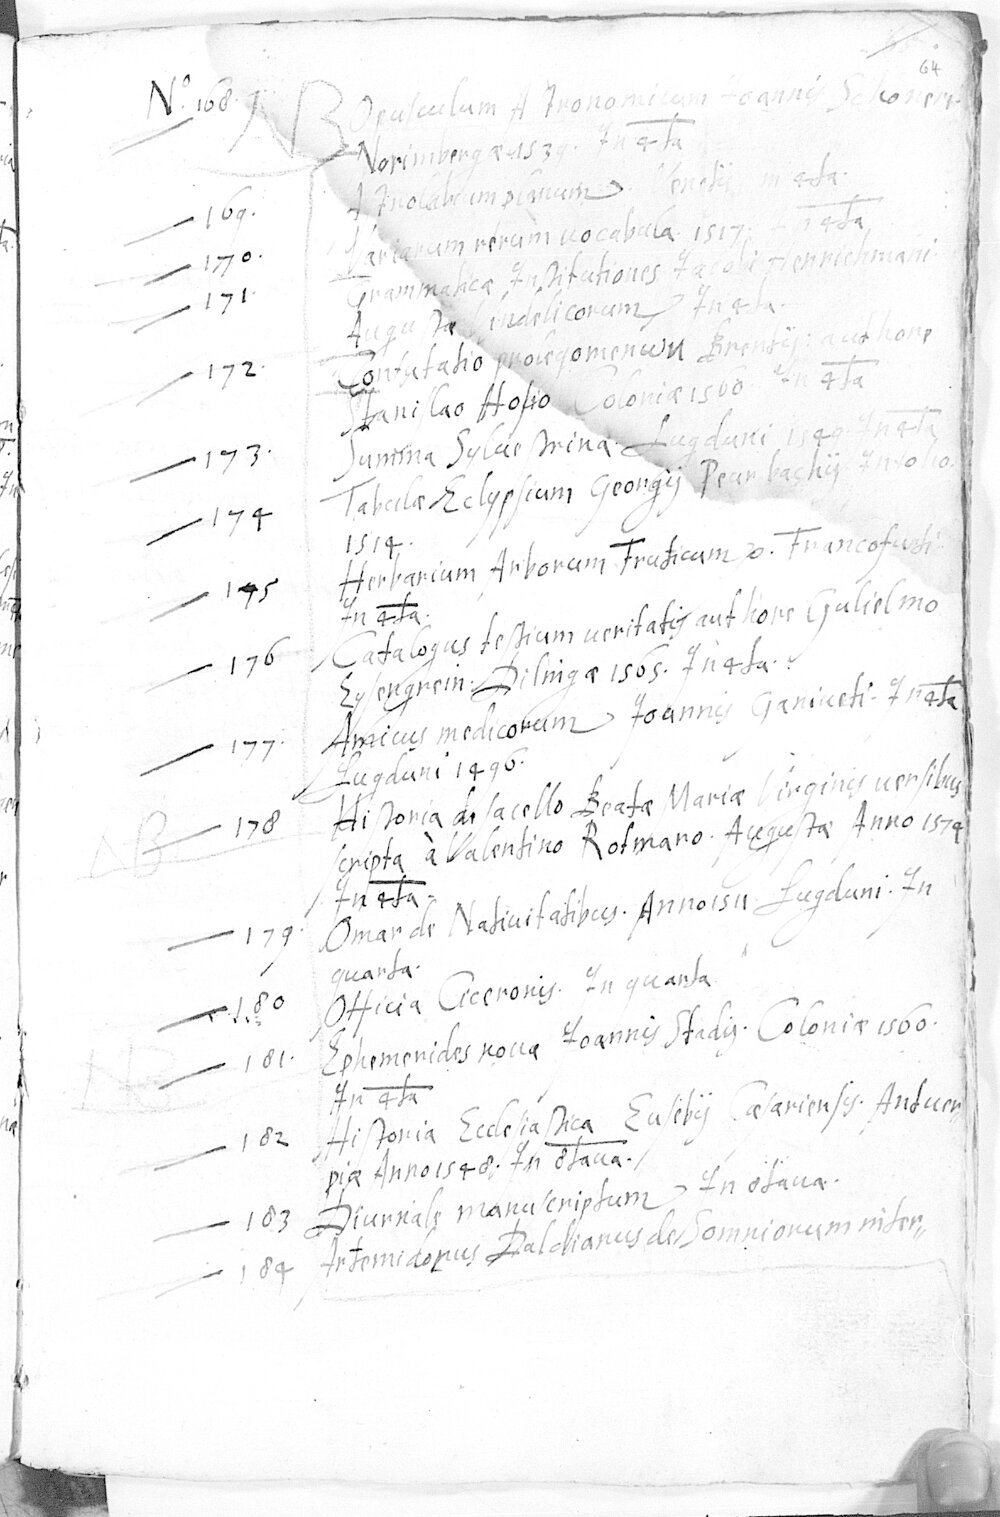 64
No. 168. B Opusculum Astronomicum Joannis Schoneri
Norimbergæ 1539. In 4ta
169. Astrolabium planum. Venetijs in 4ta.
170. Variarum rerum vocabula. 1517. In 4ta
171. Grammaticæ Institutiones Jacobi Henrichmani
Augustæ Vindelicorum. In 4ta.
172. Confutatio prolegomenum Brentij: authore
Stanislao Hosio Coloniæ 1560 In 4ta
173. Summa Sylvestrina. Lugduni 1549. In 4ta
174 Tabulæ Eclypsium Georgij Peurbachij In folio.
1514.
175 Herbarium Arborum Fruticum &. Francofurti
In 4ta.
176 Catalogus testium veritatis authore Gulielmo
Eysengrein. Dilingæ 1565. In 4ta.
177. Amicus medicorum Joannis Ganiveti. In 4ta
Lugduni 1496.
NB 178 Historia de sacello Beatæ Mariæ Virginis versibus
scripta à Valentino Rotmaro. Augustæ Anno 1574
In 4ta.
179. Omar de Nativitatibus. Anno 1511 Lugduni. In
quarta.
180 Officia Ciceronis. In quarta
NB 181. Ephemerides novæ Joannis Stadij. Coloniæ 1560.
In 4ta
182 Historia Ecclesiastica Eusebij Cæsariensis. Antuer
piæ Anno 1548. In 8tava.
183 Diurnale manuscriptum In 8tava.
184 Artemidorus Daldianus de Somniorum inter,,